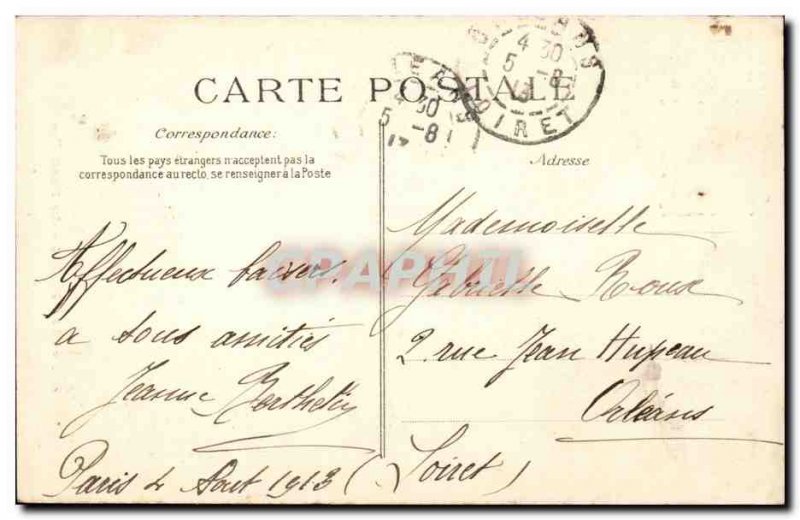 CARTE POSTALE
Correspondance:
Tous les pays étrangers n'acceptent pas la
correspondance au recto, se renseigner à la Poste
Affectueux baisers.
a tous amitiés
Jeanne
Paris 4 Aout 1913
Adresse
Mademoiselle
Roux
2 rue Jean Hupeau
Orléans
(Loiret)
4 30
5 -8
LOIRET
4 30
5 -8